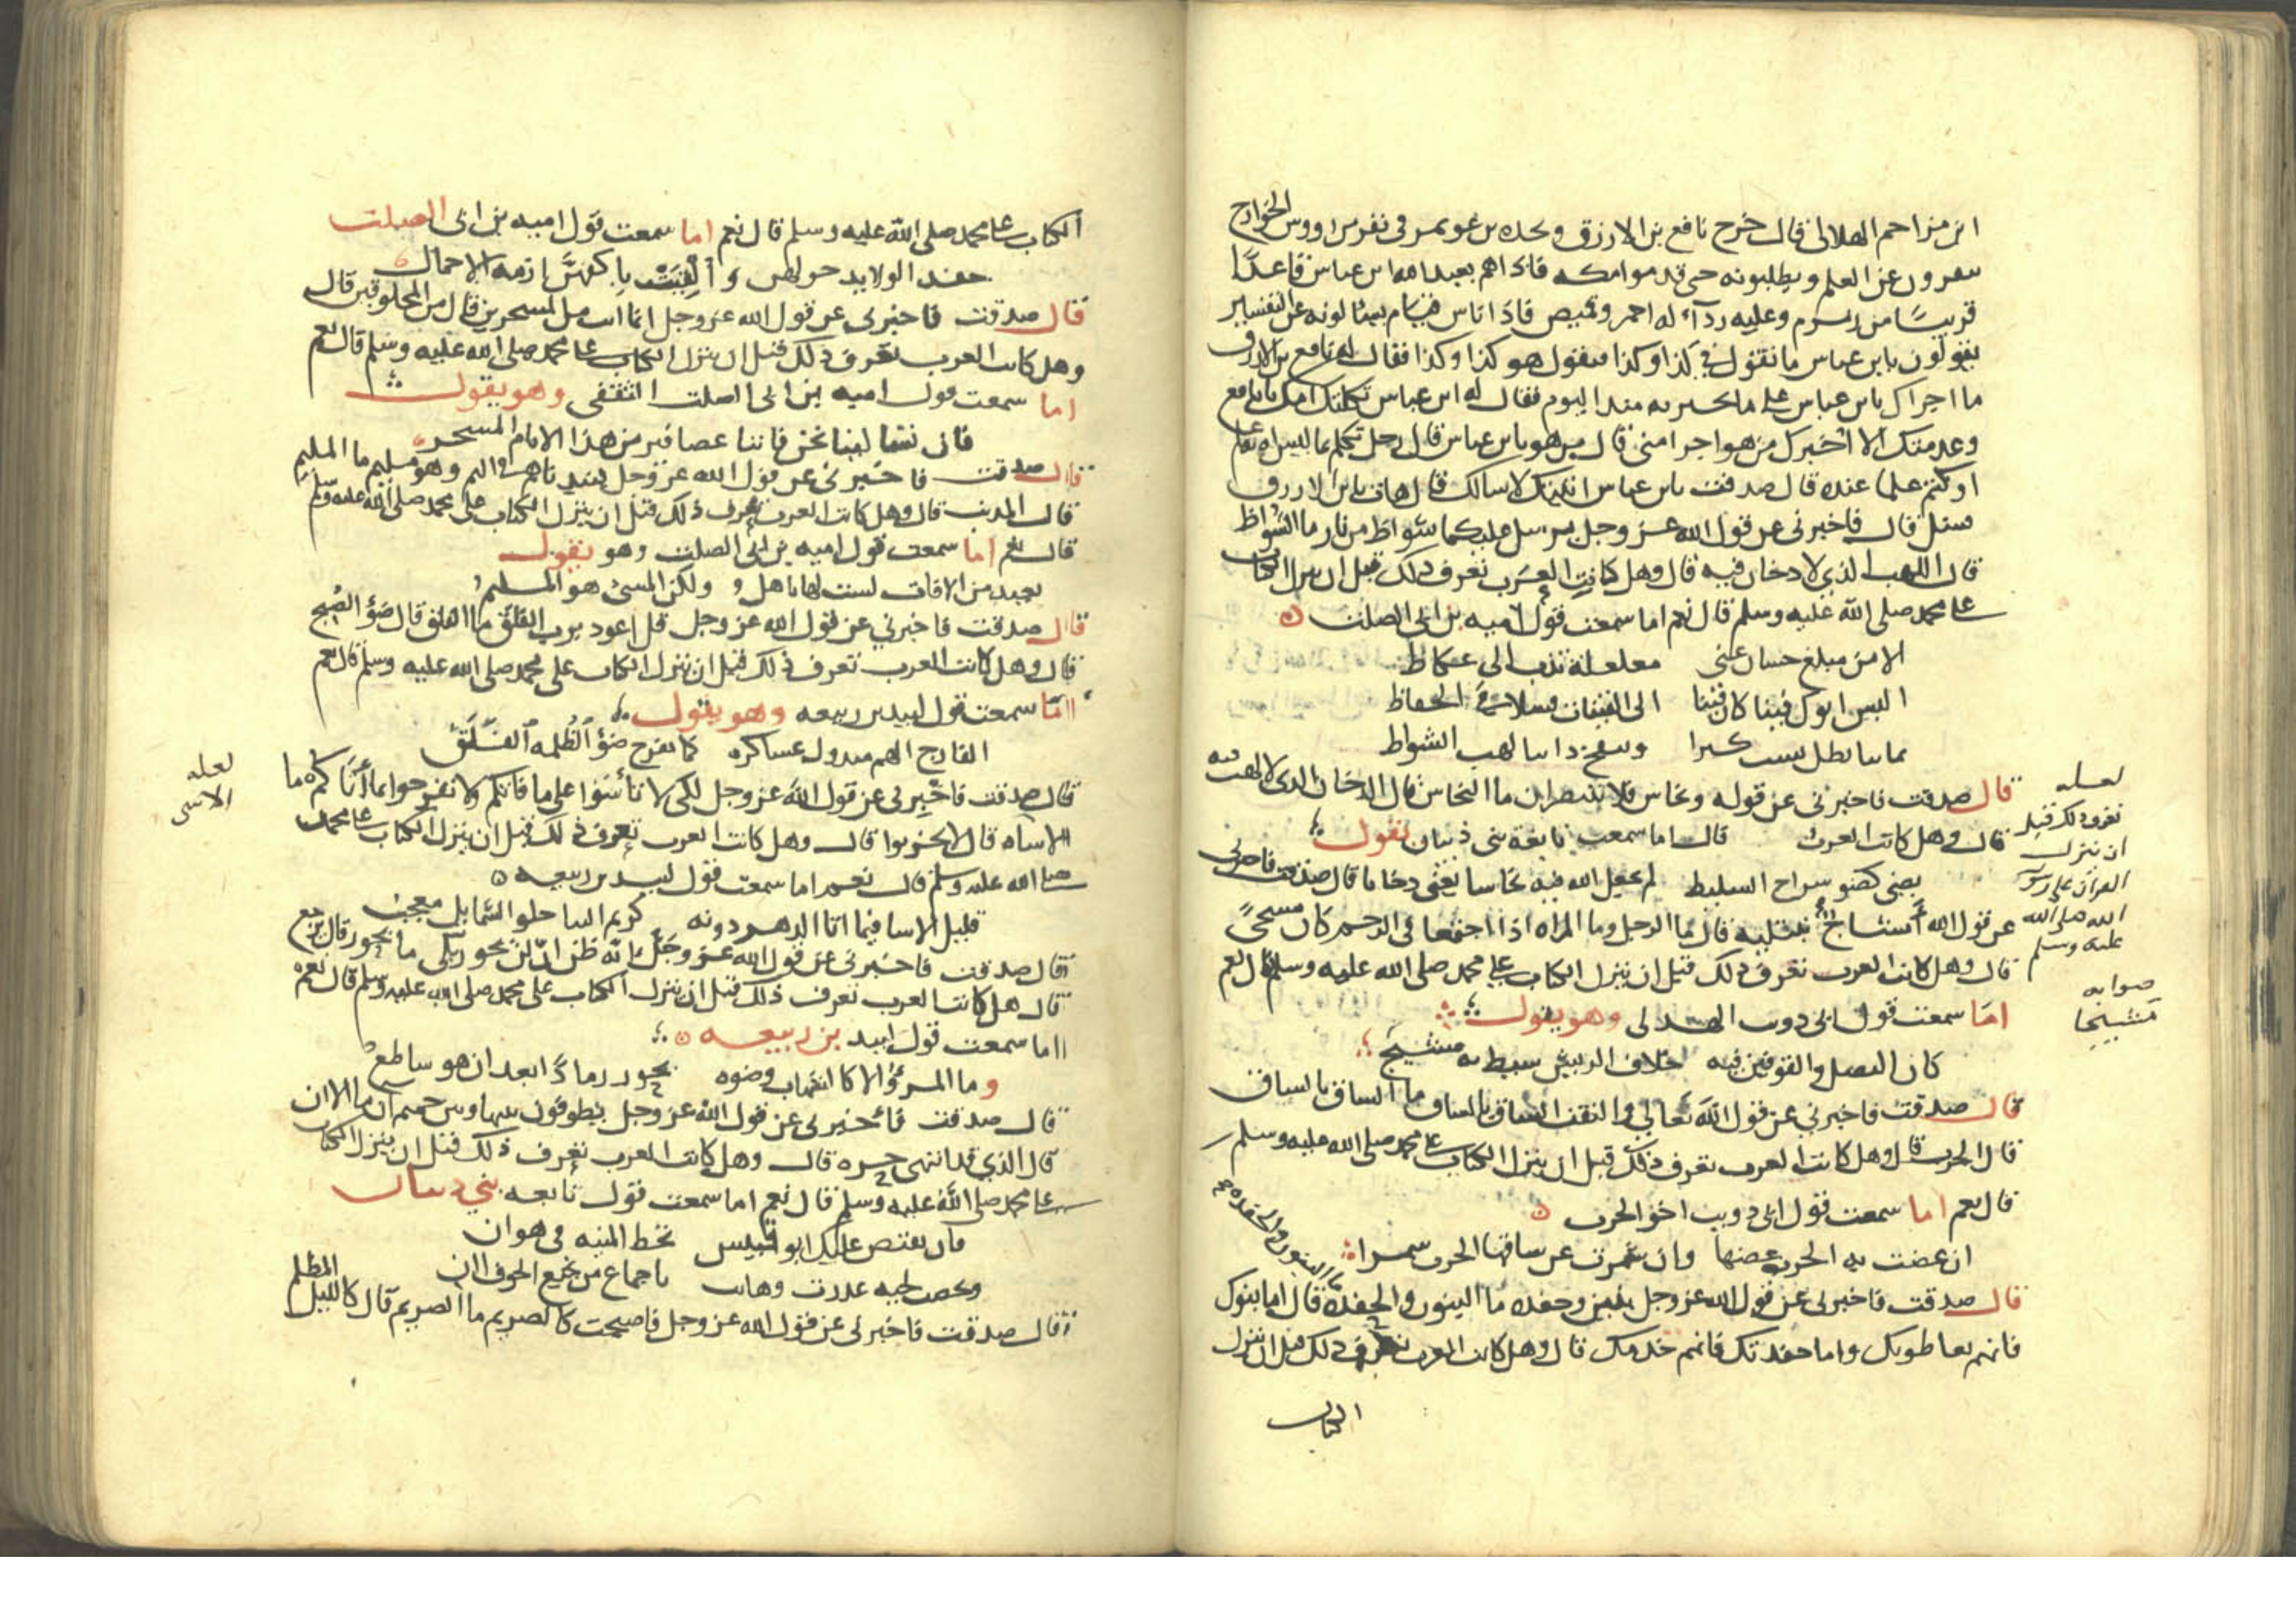 ابن مزاحم الهلالى قال خرج نافع بن الازرق ونجده بن عويمر فى نفر من رووس الخوارج
ينقرون عن العلم ويطلبونه حتى قدموا مكه فاذا هم بعبد الله ابن عباس قاعدًا
قريبًا من زمزم وعليه رداء له احمر وقميص فاذا اناس قيام يسالونه عن التفسير
يقولون يابن عباس ما تقول فى كذا وكذا فيقول هو كذا وكذا فقال له نافع بن الازرق
ما اجراك يابن عباس على ما تخبر به منذ اليوم فقال له ابن عباس ثكلتك امك يا نافع
وعدمتك الا اخبرك من هو اجرا منى قال من هو يابن عباس قال رجل تكلم بما ليس له به علم
او كتم علما عنده قال صدقت يابن عباس اتيتك لاسالك قال هات يابن الازرق
فسل قال فاخبرنى عن قول الله عز وجل يرسل عليكما شواظ من نار ما الشواظ
قال اللهب الذي لا دخان فيه قال وهل كانت العرب تعرف ذلك قبل ان ينزل الكتاب
على محمد صلى الله عليه وسلم قال نعم اما سمعت قول اميه بن ابى الصلت
الا من مبلغ حسان عنى مغلغلة تدب الى عكاظ
اليس ابوك فينا كان قينا الى القينات فسلا فى الحفاظ
يمانيا يظل يشب كيرا وينفخ دايبا لهب الشواظ
قال صدقت فاخبرنى عن قوله ونحاس فلا تنتصران ما النحاس قال الدخان الذى لا لهب فيه
قال وهل كانت العرب قال اما سمعت نابغة بنى ذبيان يقول
يضى كضو سراج السليط لم يجعل الله فيه نحاسا يعنى دخانا قال صدقت فاخبرنى
عن قول الله أمشاج نبتليه قال ما الرجل وما المراه اذا اجتمعا فى الرحم كان مشجًا
قال وهل كانت العرب تعرف ذلك قبل ان ينزل الكتاب على محمد صلى الله عليه وسلم قال نعم
اما سمعت قول ابى ذويب الهذلى وهو يقول
كان النصل والفوقين فيه خلاف الريش سيط به مشيج
قال صدقت فاخبرني عن قول الله تعالى والتفت الساق بالساق ما الساق بالساق
قال الحرب قال وهل كانت العرب تعرف ذلك قبل ان ينزل الكتاب على محمد صلى الله عليه وسلم
قال نعم اما سمعت قول ابى ذويب اخو الحرب
ان عضت به الحرب عضها وان شمرت عن ساقها الحرب شمرا
قال صدقت فاخبرنى عن قول الله عز وجل بنين وحفده ما البنون والحفده قال اما بنوك
فانهم يعاطونك واما حفدتك فانهم خدمك قال وهل كانت العرب تعرف ذلك قبل ان ينزل
الكتاب
لعله
تعرف ذلك قبل
ان ينزل
القرآن على رسول
الله صلى الله
عليه وسلم
صوابه
مشيجا
الكتاب على محمد صلى الله عليه وسلم قال نعم اما سمعت قول اميه بن ابى الصلت
حفد الولايد حولهن وألقيت باكفهن ازمه الاجمال
قال صدقت فاخبرنى عن قول الله عز وجل انما انت من المسحرين قال من المخلوقين قال
وهل كانت العرب تعرف ذلك قبل ان ينزل الكتاب على محمد صلى الله عليه وسلم قال نعم
اما سمعت قول اميه بن ابى الصلت الثقفى وهو يقول
فان تسالينا نحن فاننا عصافير من هذا الانام المسحر
قال صدقت فاخبرنى عن قول الله عز وجل فنبذناهم فى اليم وهو مليم ما المليم
قال المذنب قال وهل كانت العرب تعرف ذلك قبل ان ينزل الكتاب على محمد صلى الله عليه وسلم
قال نعم اما سمعت قول اميه بن ابى الصلت وهو يقول
بعيد من الافات لست لها باهل ولكن المسئ هو المليم
قال صدقت فاخبرني عن قول الله عز وجل قل اعوذ برب الفلق ما الفلق قال ضوء الصبح
قال وهل كانت العرب تعرف ذلك قبل ان ينزل الكتاب على محمد صلى الله عليه وسلم قال نعم
اما سمعت قول لبيد بن ربيعه وهو يقول
الفارج الهم مبذول عساكره كما يفرج ضوء الظلمه الفلق
قال صدقت فاخبرنى عن قول الله عز وجل لكى لا تأسوا على ما فاتكم ولا تفرحوا بما أتاكم ما
الاساه قال لا تحزنوا قال وهل كانت العرب تعرف ذلك قبل ان ينزل الكتاب على محمد
صلى الله عليه وسلم قال نعم اما سمعت قول لبيد بن ربيعه
قليل الاسا فيما اتا الدهر دونه كريم النثا حلو الشمايل معجب
قال صدقت فاخبرنى عن قول الله عز وجل انه ظن ان لن يحور بلى ما يحور قال يرجع
قال هل كانت العرب تعرف ذلك قبل ان ينزل الكتاب على محمد صلى الله عليه وسلم قال نعم
اما سمعت قول لبيد بن ربيعه
وما المرؤ الا كالشهاب وضوه يحور رمادًا بعد ان هو ساطع
قال صدقت فاخبرنى عن قول الله عز وجل يطوفون بينها وبين حميم آن ما الان
قال الذي قد انتهى حره قال وهل كانت العرب تعرف ذلك قبل ان ينزل الكتاب
على محمد صلى الله عليه وسلم قال نعم اما سمعت قول نابغه بني ذبيان
فان يقبض عليك ابو قبيس تحط المنيه فى هوان
وتخضب لحيه غدرت وخانت باحماء من نجيع الجوف ان
قال صدقت فاخبرنى عن قول الله عز وجل فاصبحت كالصريم ما الصريم قال كالليل المظلم
لعله
الاسى